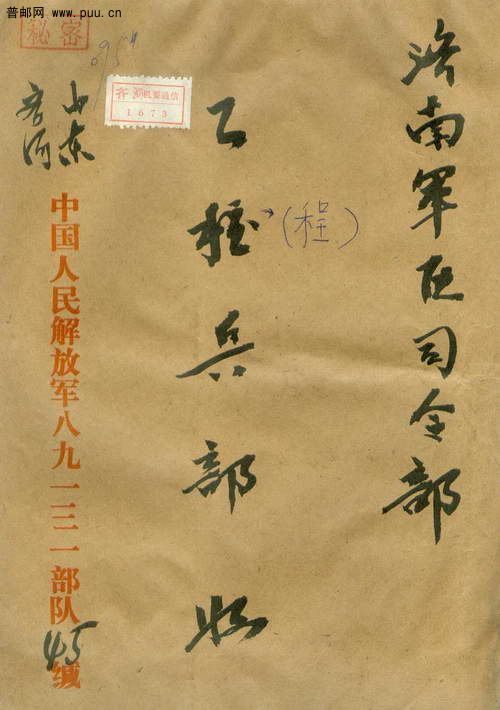 普邮网 www.puu.cn
秘密
齐河机要通信
1673
济南军区司令部
工程兵部 收
(程)
山东
齐河
中国人民解放军八九一三一部队缄
45